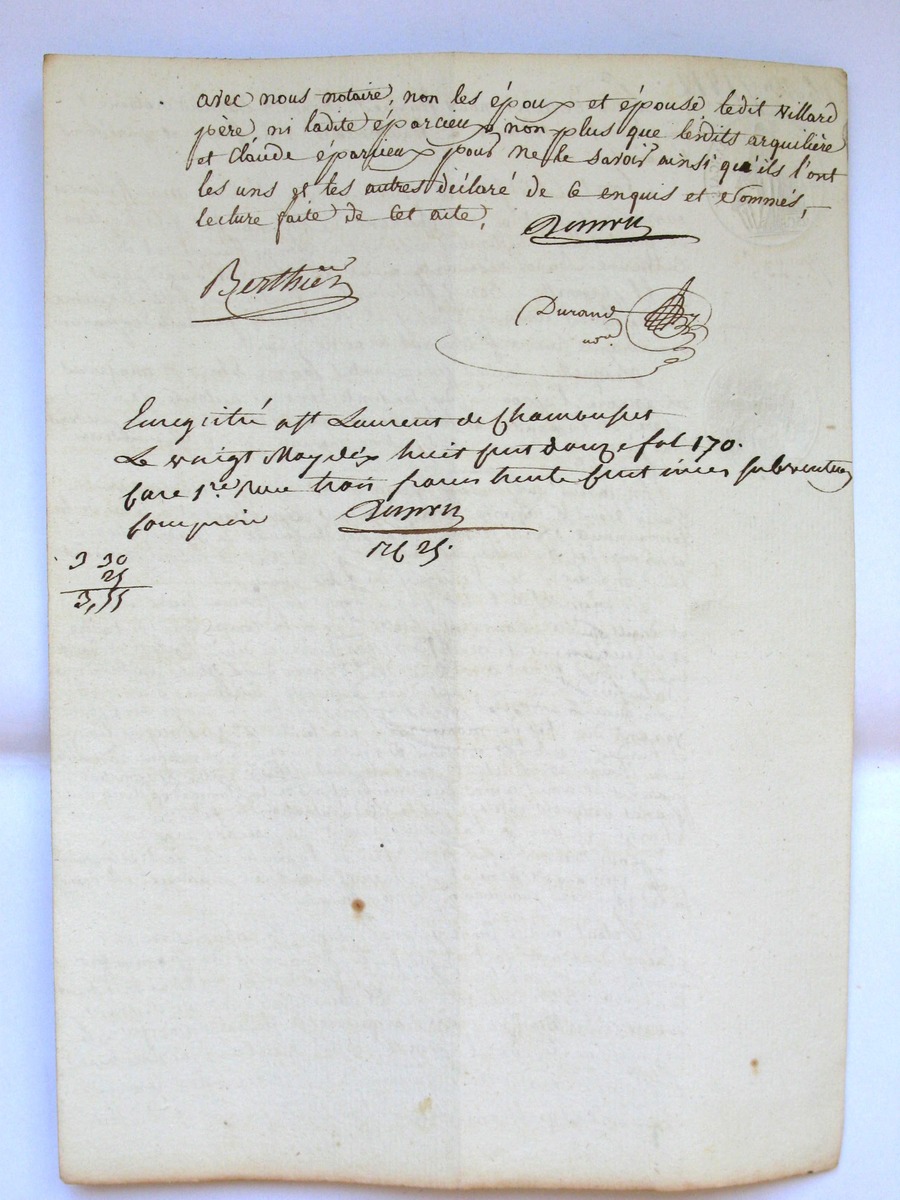 avec nous notaire, non les époux et épouse ledit villard
père, ni ladite éparcieux, non plus que lesdits arquilière
et Claude éparcieux pour ne le savoir ainsi qu'ils l'ont
les uns et les autres déclaré de ce enquis et sommés,
lecture faite de cet acte,
Berthier
Durand
nore
Enregistré a st Laurent de Chamousset
Le vingt May dix huit cent douze fol 170.
Case 1re Reçu trois francs trente centimes subvention
comprise
3 30
25
3,55